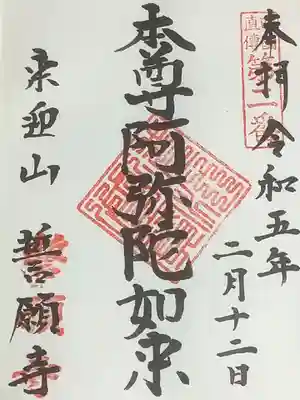 奉拝 令和五年
二月十二日
本尊阿弥陀如来
来迎山 誓願寺